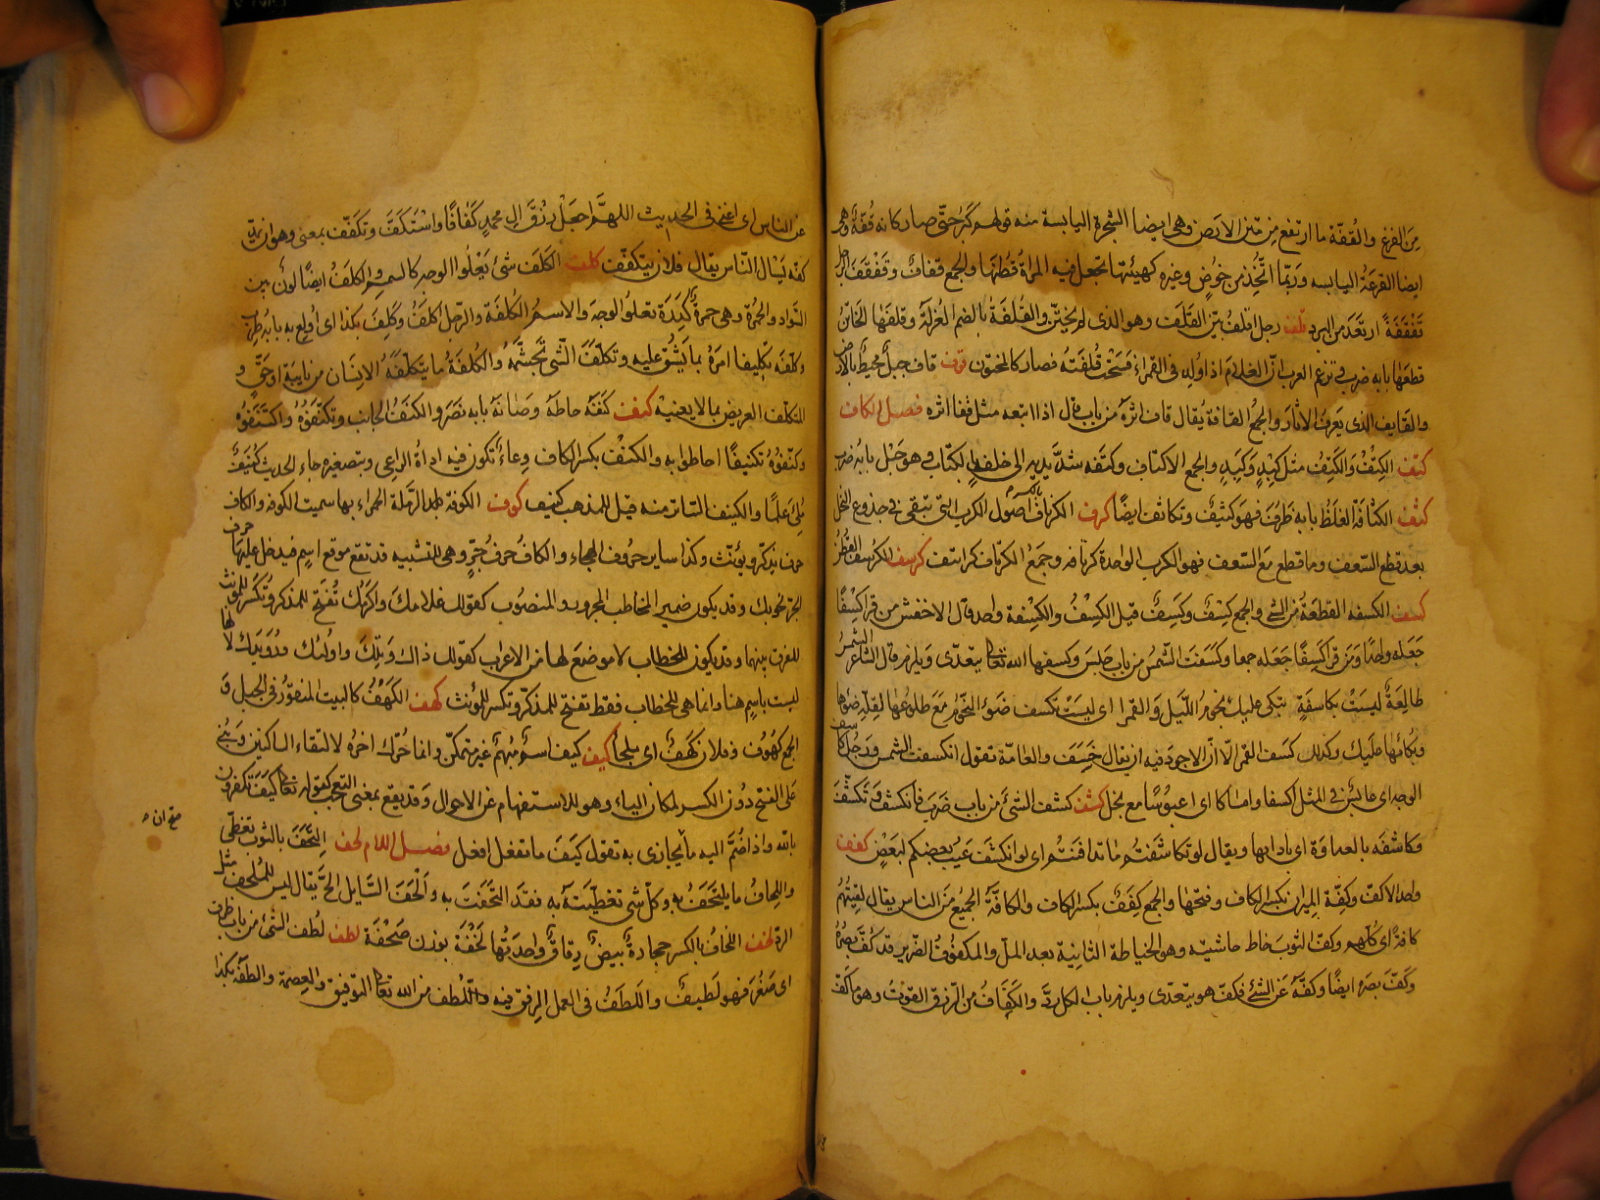 من الفزع والقفة ما ارتفع من متن الارض وهى ايضا الشجرة اليابسة منه قولهم كبر حتى صار كانه قفة وهى
ايضا القرعة اليابسه وربما اتخذ من خوص وغيره كهيئتها تجعل فيه المراة قطنها والجمع قفاف وقفقف الرجل
قفقفة ارتعد من البرد قلف رجل اقلف بين القلف وهو الذى لم يختتن والقلفة بالضم الغرلة وقلفها الخاتن
قطعها بابه ضرب وتزعم العرب ان الغلام اذا ولد فى القمراء فسحت قلفته فصار كالمختون قوف قاف جبل محيط بالارض
والقايف الذى يعرف الاثار والجمع القافة يقال قاف اثره من باب قال اذا اتبعه مثل قفا اثره فصل الكاف
كتف الكتف والكتف مثل كبد وكبد والجمع الاكتاف وكتفه شد يديه الى خلف بالكتاف وهو حبل بابه ضرب
كثف الكثافة الغلظ بابه ظرف فهو كثيف وتكاثف ايضا كرف الكراف بالكسر اصول الكرب التى تبقى فى جذوع النخل
بعد قطع السعف وما قطع مع السعف فهو الكرب الواحدة كرنافه وجمع الكرناف كرانيف كرسف الكرسف القطن
كسف الكسفه القطعة من الشئ والجمع كسف وكسف قيل الكسف والكسفة واحد قال الاخفش من قرا كسفا
جعله واحدا ومن قرا كسفا جعله جمعا وكسفت الشمس من باب جلس وكسفها الله تعالى يتعدى ويلزم قال الشاعر الشمس
طالعة ليست بكاسفة تبكى عليك نجوم الليل والقمرا اى ليست تكسف ضوء النجوم مع طلوعها لقلة ضوئها
وبكائها عليك وكذلك كسف القمر الا ان الاجود فيه ان يقال خسف والعامة تقول انكسفت الشمس ورجل كاسف
الوجه اى عابس فى المثل اكسفا وامساكا اى اعبوسا مع بخل كشف كشف الشئ من باب ضرب فانكشف وتكشف
وكاشفه بالعداوة اى باداه بها ويقال لو تكاشفتم ما تدافنتم اى لو انكشف عيب بعضكم لبعض كفف
واحد الاكف وكفة الميزان بكسر الكاف وفتحها والجمع كفف بكسر الكاف والكافة الجميع من الناس يقال لقيتهم
كافة اى كلهم وكف الثوب خاط حاشيته وهو الخياطة الثانية بعد المل والمكفوف الضرير قد كف بصره
وكف بصره ايضا وكفه عن الشئ فكف هو يتعدى ويلزم باب الكل رد والكفاف من الرزق القوت وهو ما كف
عن الناس اى اغنى فى الحديث اللهم اجعل رزق ال محمد كفافا واستكف وتكفف بمعنى وهو ان يمد
كفه يسال الناس يقال فلان يتكفف كلف الكلف شئ يعلوا الوجه كالسمسم والكلف ايضا لون بين
السواد والحمرة وهى حمرة كدرة تعلوا الوجه والاسم الكلفة والرجل اكلف وكلف بكذا اى اولع به بابه طرب
وكلفه تكليفا امره بما يشق عليه وتكلف الشئ تجشمه والكلفة ما يتكلفه الانسان من نايبة او حق و
المتكلف العريض بما لا يعنيه كنف كنفه حاطه وصانه بابه نصر والكنف الجانب وتكنفوه واكتنفوه
وكنفوه تكنيفا احاطوا به والكنف بكسر الكاف وعاء تكون فيه اداة الراعى وبتصغيره جاء الحديث كنيف
ملئ علما والكنيف الساتر منه قيل للمذهب كنيف كوف الكوفة الرملة الحمراء بها سميت الكوفه والكاف حرف
حرف يذكر ويؤنث وكذا ساير حروف الهجاء والكاف حرف جر وهى للتشبيه قد تقع موقع اسم فيدخل عليها
الجر نحو بك وقد يكون ضمير المخاطب المجرور والمنصوب كقولك غلامك واكرمك تفتح للمذكر وتكسر للمؤنث
للفرق بينهما وقد يكون للخطاب لا موضع لها من الاعراب كقولك ذاك وتلك واولئك ورويدك لانها
ليست باسم هنا وانما هى للخطاب فقط تفتح للمذكر وتكسر للمؤنث كهف الكهف كالبيت المنقور فى الجبل و
الجمع كهوف وفلان كهف اى ملجا كيف كيف اسم مبهم غير متمكن وانما حرك اخره لالتقاء الساكنين وبنى
على الفتح دون الكسر لمكان الياء وهو للاستفهام عن الاحوال وقد يقع بمعنى التعجب كقوله تعالى كيف تكفرون
بالله واذا ضم اليه ما يجازى به تقول كيف ما تفعل افعل فصل اللام لحف التحف بالثوب تغطى
واللحاف ما يلتحف به وكل شئ تغطيت به فقد التحفت به والحف السايل الح يقال ليس للملحف مثل
الرد لخف اللخاف بالكسر حجارة بيض رقاق واحدتها لخفة بوزن صحفة لطف لطف الشئ من باب ظرف
اى صغر فهو لطيف واللطف فى العمل الرفق فيه واللطف من الله تعالى التوفيق والعصمة والطفه بكذا